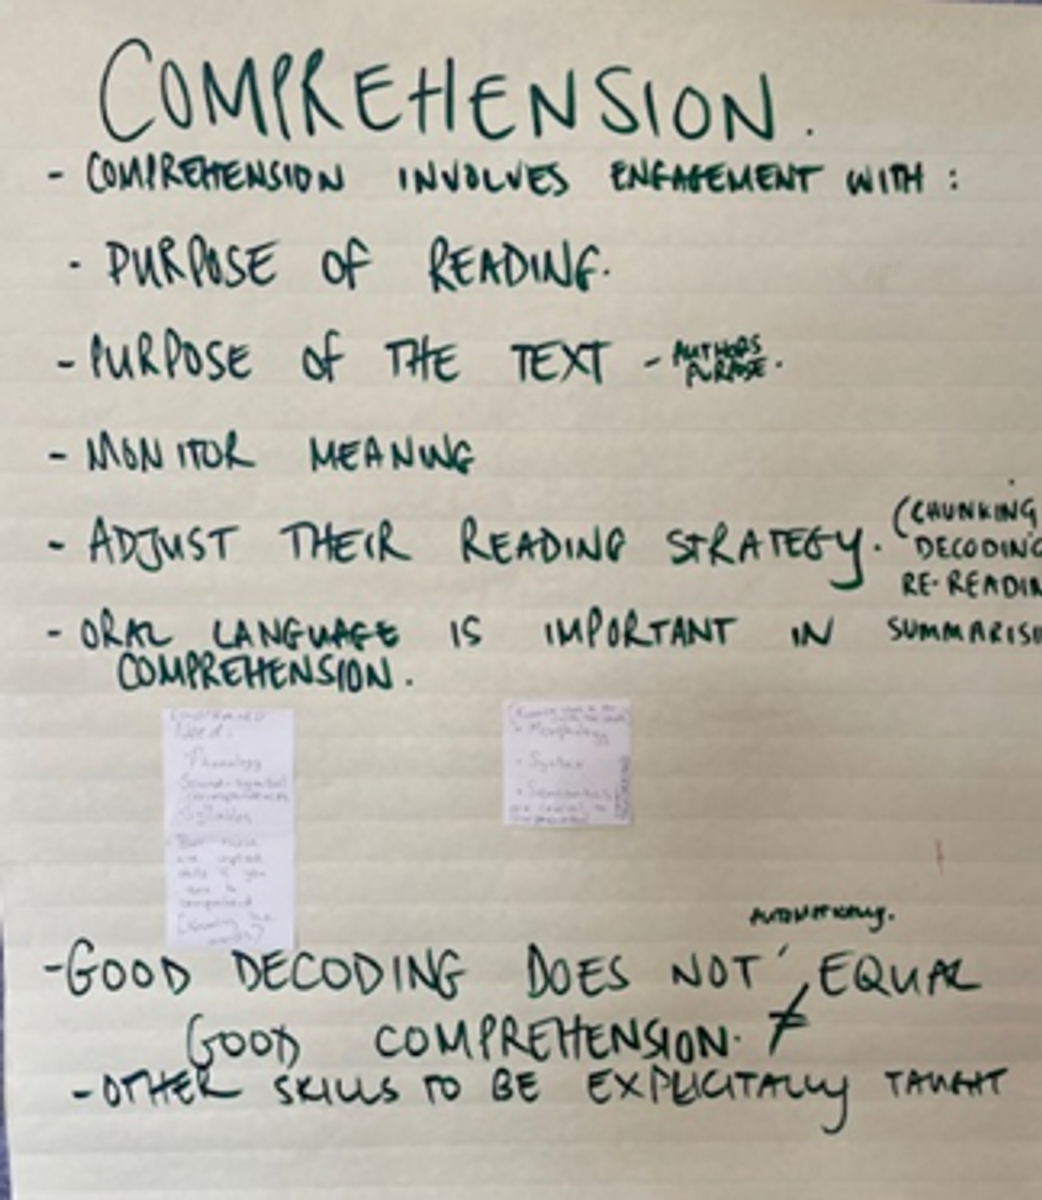 COMPREHENSION.
- COMPREHENSION INVOLVES ENGAGEMENT WITH:
- PURPOSE OF READING.
- PURPOSE OF THE TEXT - AUTHORS PURPOSE.
- MONITOR MEANING
- ADJUST THEIR READING STRATEGY.
(CHUNKING
DECODING
RE-READIN
SUMMARISI
- ORAL LANGUAGE IS IMPORTANT IN
COMPREHENSION.
Need:
- Phonology
Sound-symbol
correspondences
- Syllables
But these
are
skills if you
are to
comprehend
- Morphology
- Syntax
- Semantics
AUTOMATICALLY.
- GOOD DECODING DOES NOT EQUAL
GOOD COMPREHENSION. ≠
- OTHER SKILLS TO BE EXPLICITALLY TAUGHT